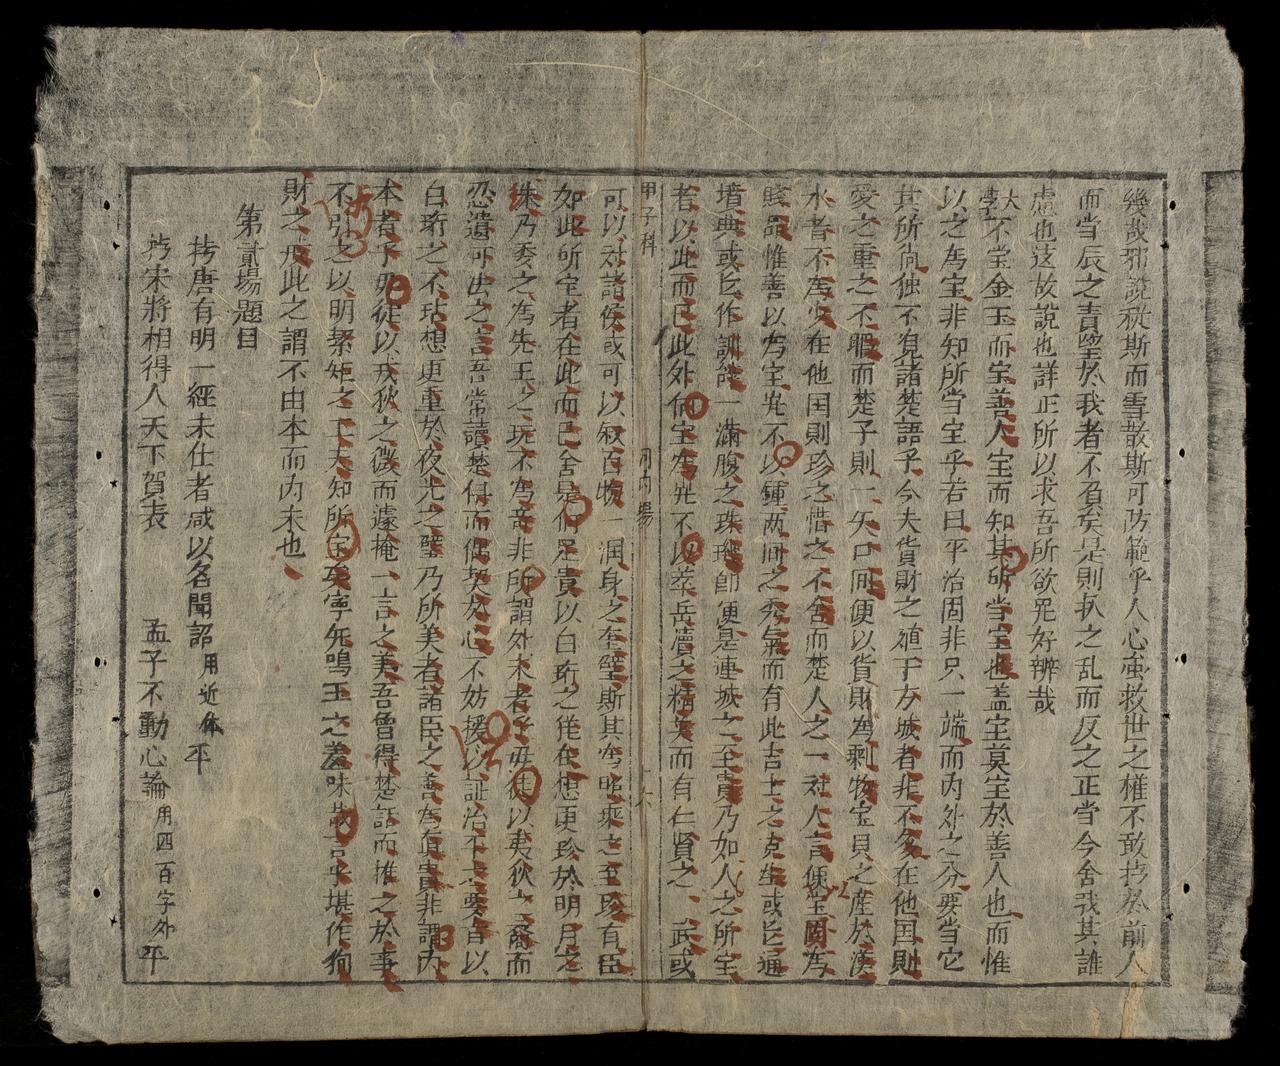 幾哉邪說從斯而雪散斯可防範乎人心蛮救世之權不敢挍於前人
而当辰之責望於我者不負矣是則扒之乱而反之正当今舍我其誰
慮也这故說也詳正所以求吾所欲旯好辨哉
大孝不宝金玉而宝善人宝而知其所当宝也盖宝莫宝於善人也而惟
以之為宝非知所当宝乎若曰平治固非只一端而内外之分要当它
其所尚独不見諸楚語乎今夫貨財之殖于方城者非不多在他国則
愛之重之不暇而楚子則一矢口间便以貨財為剩物宝貝之產於漢
水者不為少在他国則珍之惜之不舍而楚人之一对人言便宝国為
賎品惟善以為宝旯不以鍾两间之秀氣而有此吉士之克生或旨通
墳典或旨作訓辞一滿腹之珠璣即便是連城之至貴乃如人之所宝
者以此而已此外何宝為旯不以萃岳瀆之精英而有仁賢之 武或
甲子科
可以对諸侯或可以叙百物一润身之奎璧斯其為晞乘之至珍有臣
如此所宝者在此而已舍是何足貴以白珩之隹在想更珍於明月之
珠乃秀之為先王之玩不為奇非所謂外末者乎毋徒以夷狄之裔而
忍遺可出之言吾常讀楚 而偶契於心不妨援以証治平之要旨以
白珩之不玷想更重於夜光之璧乃所美者諸臣之善為伯貴非謂内
本者乎毋徒以戎狄之微而遽掩一言之美吾曾得楚語而推之於事
不引之以明絜矩之工夫知所宝矣寧旡鳴玉之羞味哉言乎堪作狥
財之 此之謂不由本而内末也
第貳場題目
拷唐有明一經未仕者咸以名聞詔用近体 平
拷宋將相得人天下賀表 孟子不動心論用四百字外平